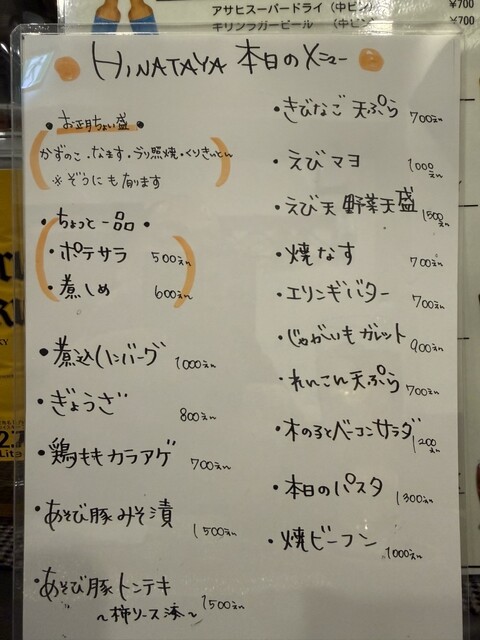 アサヒスーパードライ(中ビン) ¥700
キリンラガービール (中ビン) ¥700
HINATAYA 本日のメニュー
・お正月ちょい盛・
かずのこ・なます・ブリ照焼・くりきんとん
※ぞうにも有ります
・ちょっと一品・
・ポテサラ 500えん
・煮しめ 600えん
・煮込ハンバーグ 1000えん
・ぎょうざ 800えん
・鶏ももカラアゲ 700えん
・あそび豚みそ漬 1500えん
・あそび豚トンテキ
〜柿ソース添〜 1500えん
・きびなご天ぷら 700えん
・えびマヨ 1000えん
・えび天野菜天盛 1500えん
・焼なす 700えん
・エリンギバター 700えん
・じゃがいもガレット 900えん
・れんこん天ぷら 700えん
・木の子とベーコンサラダ 1200えん
・本日のパスタ 1300えん
・焼ビーフン 1000えん